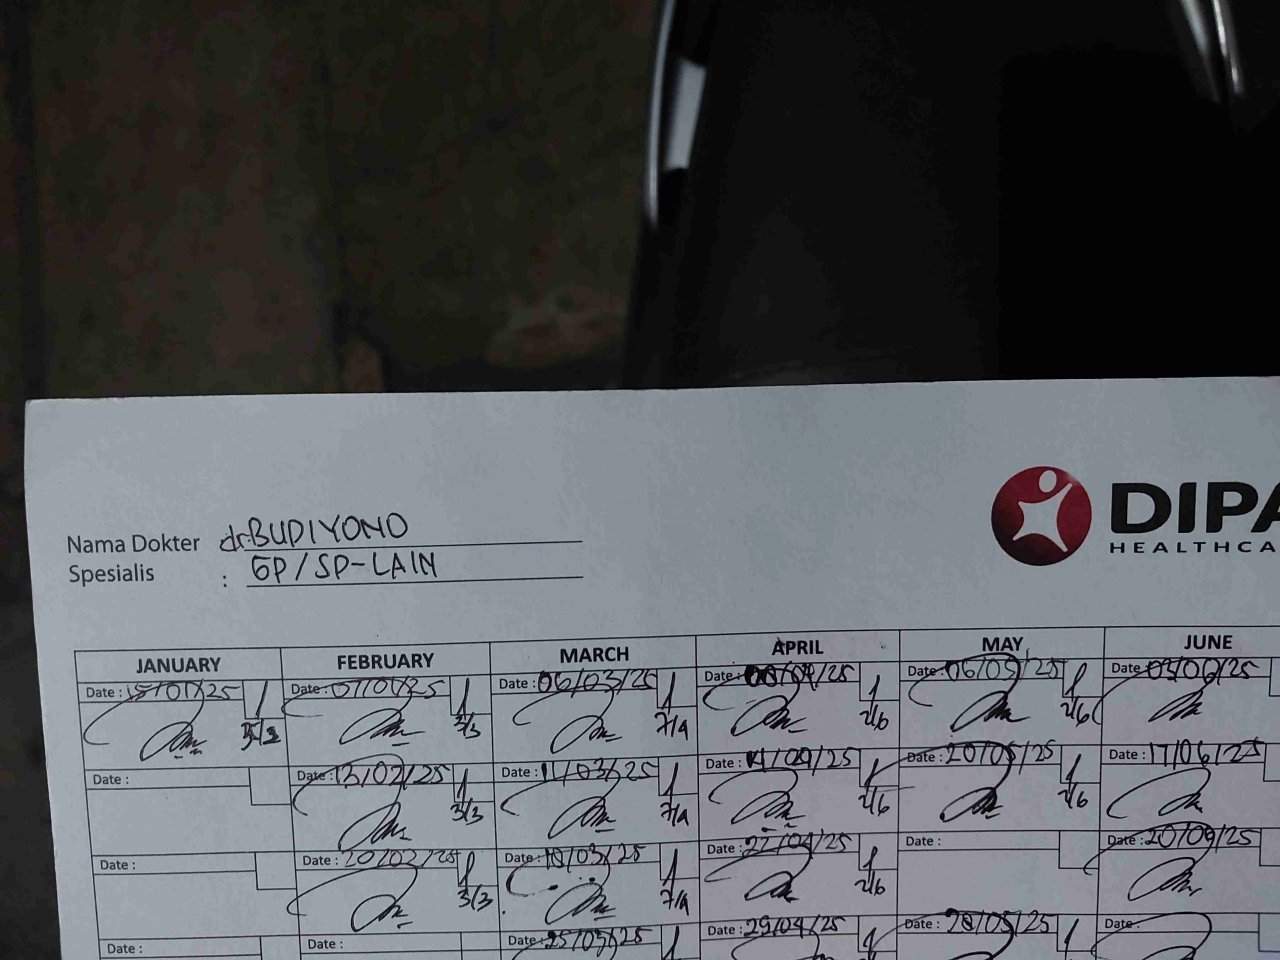 Nama Dokter dr.BUDIYONO
Spesialis : GP/SP-LAIN
DIPA
HEALTHCA
JANUARY FEBRUARY MARCH APRIL MAY JUNE
Date : 15/01/25 Date : 07/0 /25 Date : 06/03/25 Date : 08/04/25 Date : 06/05/25 Date : 03/06/25
3/3 7/4 2/6 2/6
Date : Date : 13/02/25 Date : 11/03/25 Date : 14/04/25 Date : 20/05/25 Date : 17/06/25
3/3 7/4 2/6 2/6
Date : Date : 20/02/25 Date : 18/03/25 Date : 22/04/25 Date : Date : 20/09/25
3/3 7/4 2/6
Date : Date : Date : 25/03/25 Date : 29/04/25 Date : 28/05/25 Date :